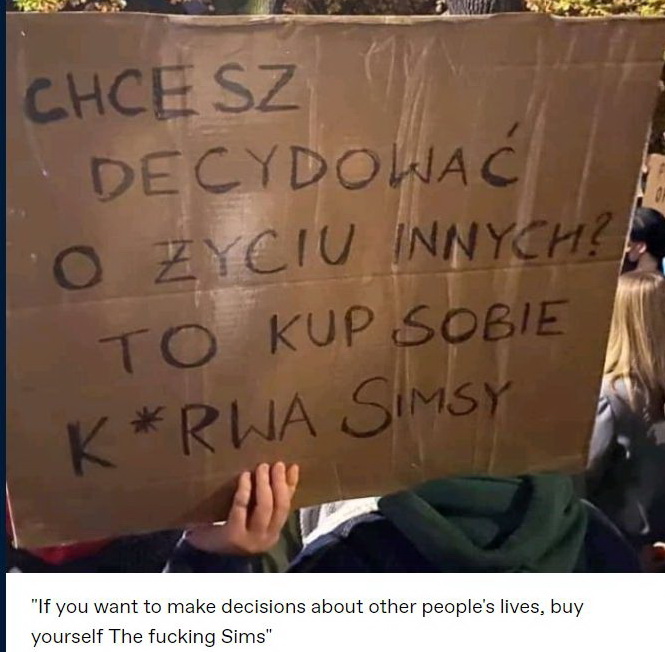 CHCESZ
DECYDOWAĆ
O ŻYCIU INNYCH?
TO KUP SOBIE
K*RWA SIMSY
"If you want to make decisions about other people's lives, buy
yourself The fucking Sims"